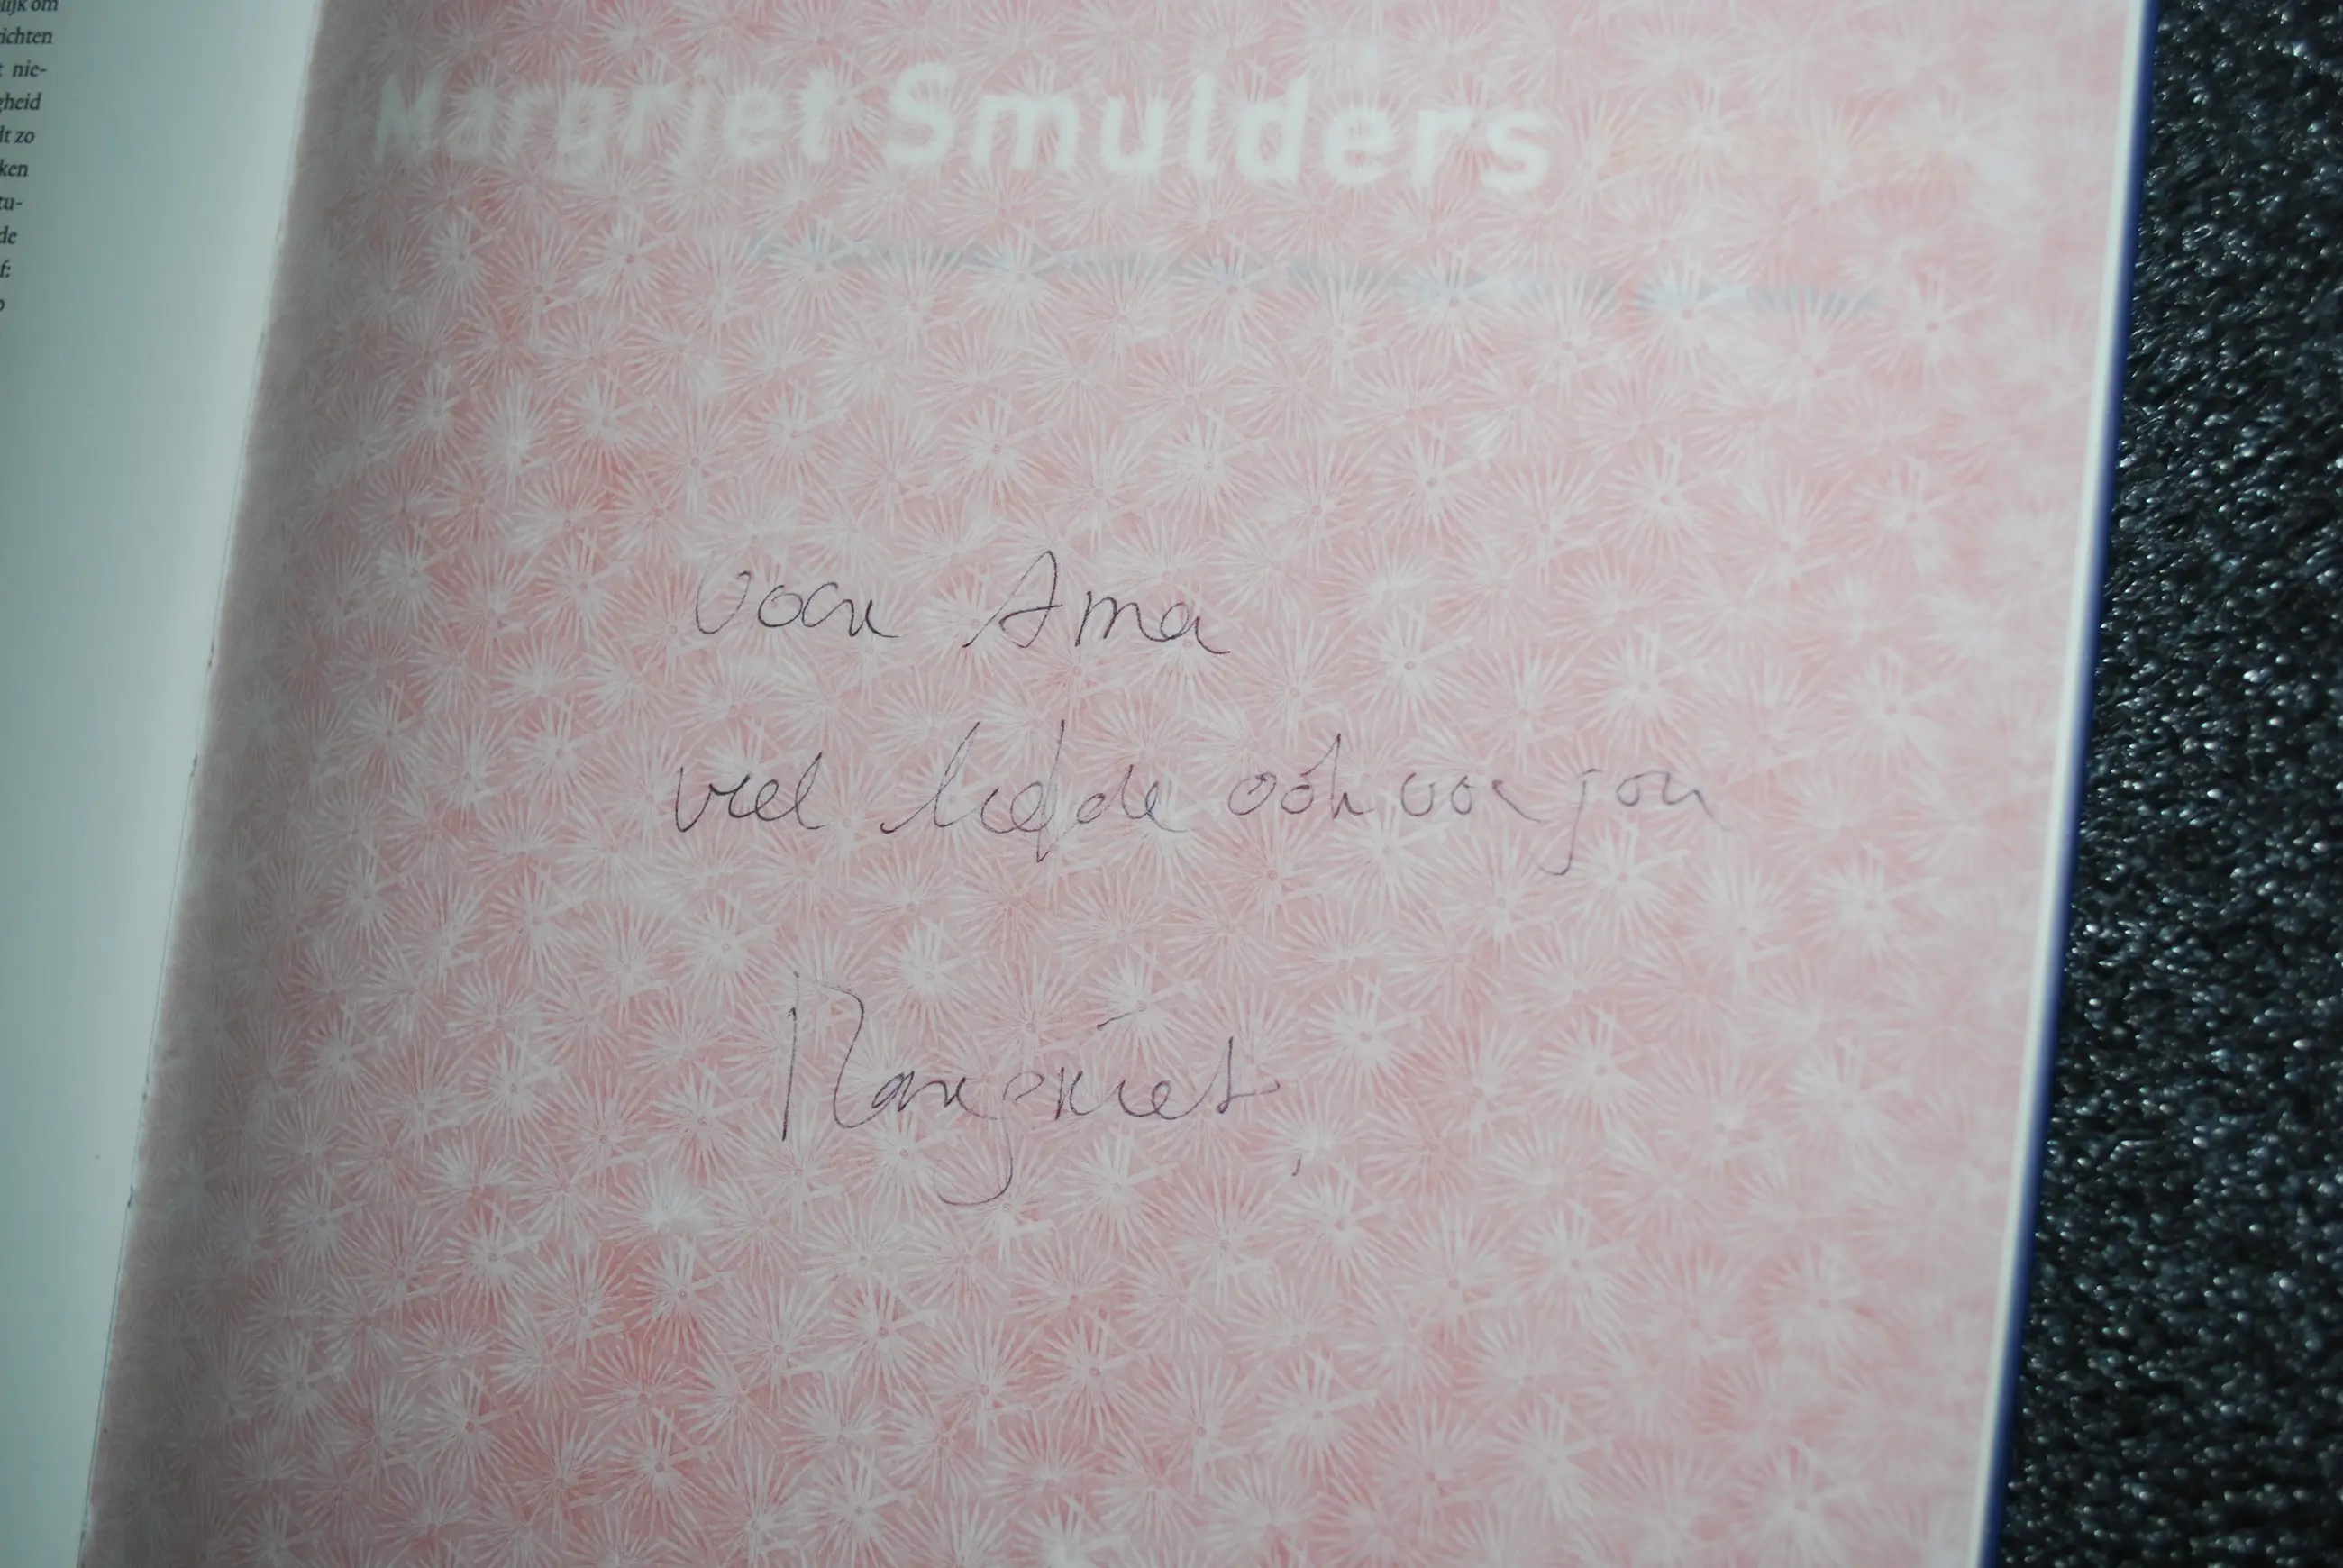 lijk om
ichten
t nie-
gheid
dt zo
ken
tu-
de
f:
o
Margriet Smulders
voor Ama
veel liefde ook voor jou
Margriet